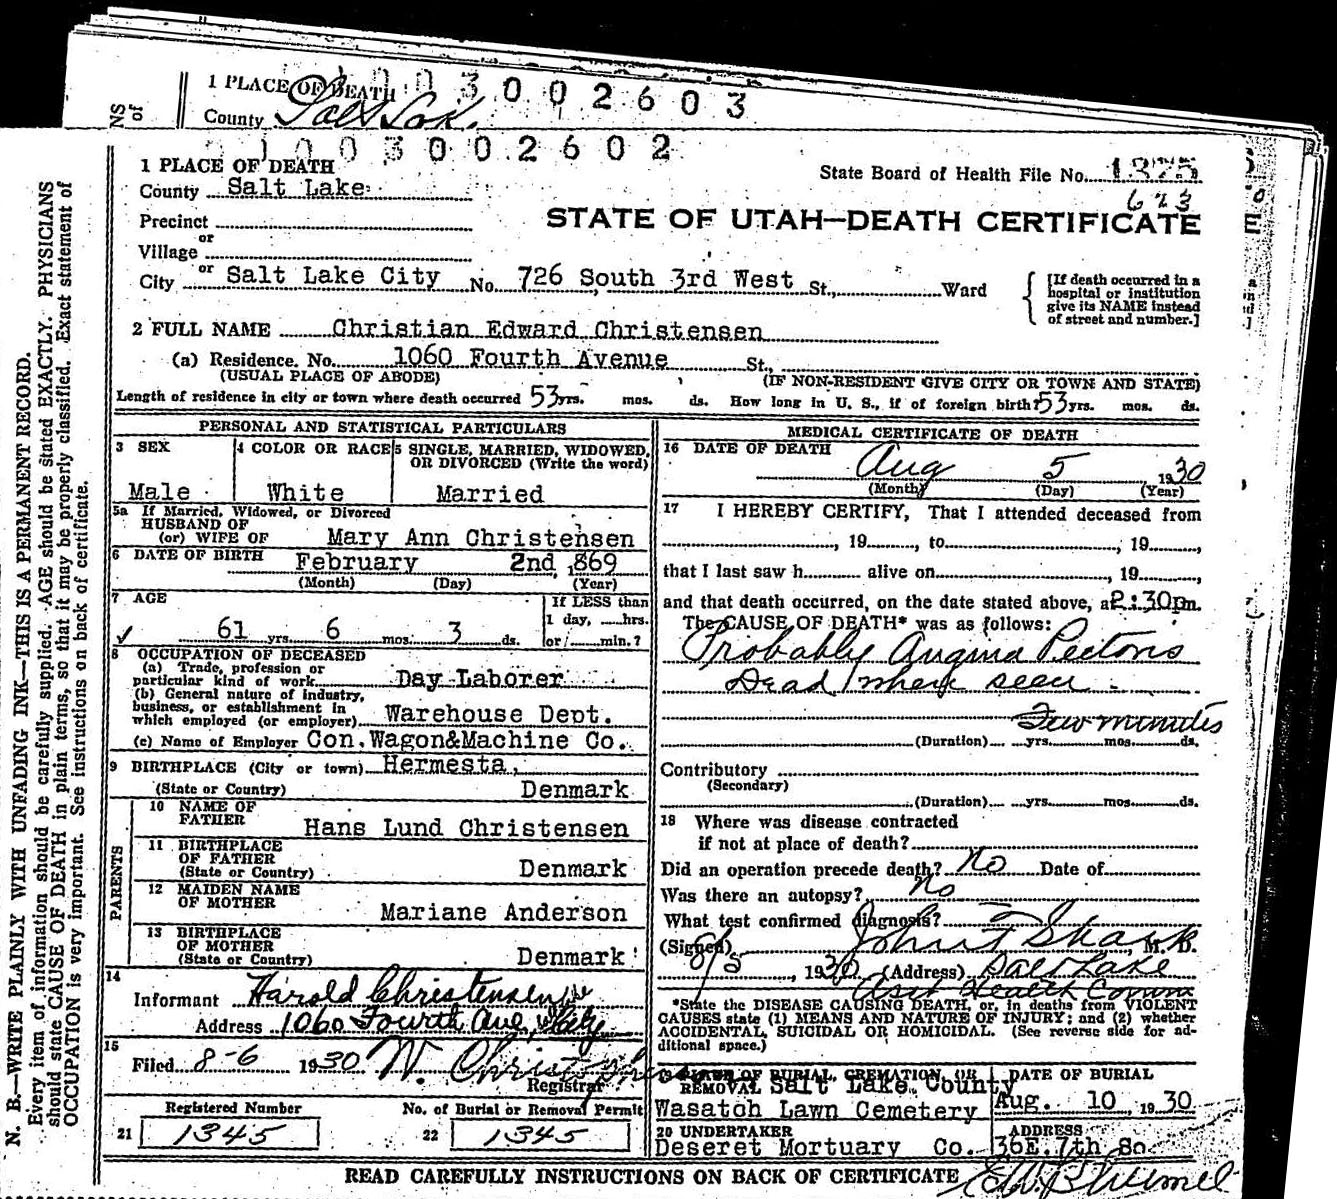 1 PLACE OF DEATH
003002603
County Salt Lak
NS
of
003002602
1 PLACE OF DEATH
State Board of Health File No. 1375
County Salt Lake
623
Precinct
STATE OF UTAH—DEATH CERTIFICATE
or
Village
or
City Salt Lake City No. 726 South 3rd West St., Ward
[If death occurred in a
hospital or institution
give its NAME instead
of street and number.]
2 FULL NAME Christian Edward Christensen
(a) Residence. No. 1060 Fourth Avenue St.,
(USUAL PLACE OF ABODE) (IF NON-RESIDENT GIVE CITY OR TOWN AND STATE)
Length of residence in city or town where death occurred 53 yrs. mos. ds. How long in U. S., if of foreign birth? 53 yrs. mos. ds.
PERSONAL AND STATISTICAL PARTICULARS
3 SEX 4 COLOR OR RACE 5 SINGLE, MARRIED, WIDOWED,
OR DIVORCED (Write the word)
Male White Married
5a If Married, Widowed, or Divorced
HUSBAND OF
(or) WIFE OF Mary Ann Christensen
6 DATE OF BIRTH February 2nd, 869
(Month) (Day) (Year)
7 AGE
If LESS than
1 day, hrs.
61 yrs. 6 mos. 3 ds. or min.?
8 OCCUPATION OF DECEASED
(a) Trade, profession or
particular kind of work Day Laborer
(b) General nature of industry,
business, or establishment in
which employed (or employer) Warehouse Dept.
(c) Name of Employer Con.Wagon&Machine Co.
9 BIRTHPLACE (City or town) Hermesta,
(State or Country) Denmark
PARENTS
10 NAME OF
FATHER Hans Lund Christensen
11 BIRTHPLACE
OF FATHER
(State or Country) Denmark
12 MAIDEN NAME
OF MOTHER Mariane Anderson
13 BIRTHPLACE
OF MOTHER
(State or Country) Denmark
14
Informant Harold Christensen
Address 1060 Fourth Ave, City
15
Filed 8-6 1930 W. Christo
Registrar
Registered Number No. of Burial or Removal Permit
21 1345 22 1345
MEDICAL CERTIFICATE OF DEATH
16 DATE OF DEATH Aug 5 1930
(Month) (Day) (Year)
17 I HEREBY CERTIFY, That I attended deceased from
, 19 , to , 19 ,
that I last saw h alive on , 19 ,
and that death occurred, on the date stated above, at 2:30pm.
The CAUSE OF DEATH* was as follows:
Probably Angina Pectoris
Dead when seen
Few minutes
(Duration) yrs. mos. ds.
Contributory
(Secondary)
(Duration) yrs. mos. ds.
18 Where was disease contracted
if not at place of death?
Did an operation precede death? No Date of
Was there an autopsy? No
What test confirmed diagnosis?
(Signed) John T Sharp, M. D.
8/5, 1930 (Address) Salt Lake
Asst Health Comm
*State the DISEASE CAUSING DEATH, or, in deaths from VIOLENT
CAUSES state (1) MEANS AND NATURE OF INJURY; and (2) whether
ACCIDENTAL, SUICIDAL OR HOMICIDAL. (See reverse side for ad-
ditional space.)
19 PLACE OF BURIAL, CREMATION, OR
REMOVAL Salt Lake County
Wasatch Lawn Cemetery
DATE OF BURIAL
Aug. 10, 1930
20 UNDERTAKER
Deseret Mortuary Co.
ADDRESS
36E. 7th So.
READ CAREFULLY INSTRUCTIONS ON BACK OF CERTIFICATE
N. B.—WRITE PLAINLY WITH UNFADING INK—THIS IS A PERMANENT RECORD.
Every item of information should be carefully supplied. AGE should be stated EXACTLY. PHYSICIANS
should state CAUSE OF DEATH in plain terms, so that it may be properly classified. Exact statement of
OCCUPATION is very important. See instructions on back of certificate.